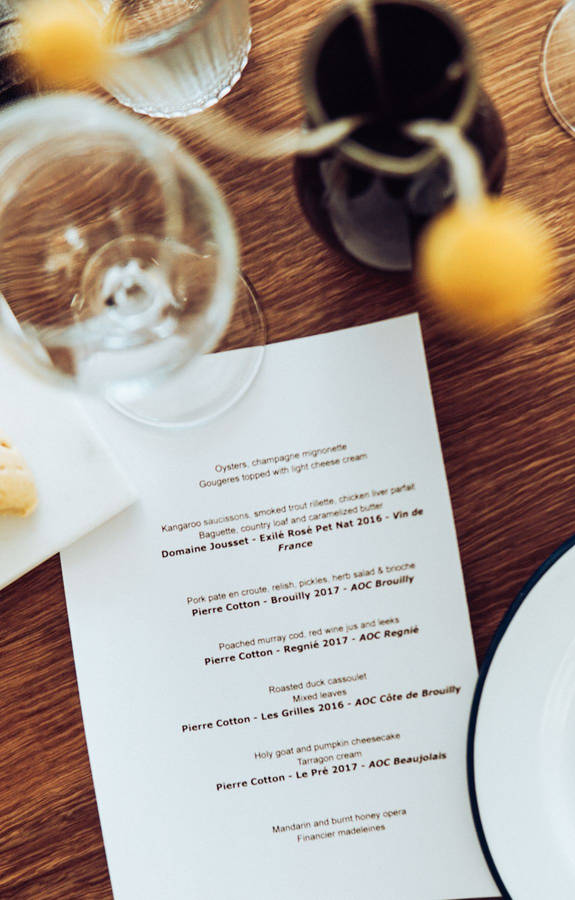 Oysters, champagne mignonette
Gougeres topped with light cheese cream
Kangaroo saucissons, smoked trout rillette, chicken liver parfait
Baguette, country loaf and caramelized butter
Domaine Jousset - Exilé Rosé Pet Nat 2016 - Vin de
France
Pork pate en croute, relish, pickles, herb salad & brioche
Pierre Cotton - Brouilly 2017 - AOC Brouilly
Poached murray cod, red wine jus and leeks
Pierre Cotton - Regnié 2017 - AOC Regnié
Roasted duck cassoulet
Mixed leaves
Pierre Cotton - Les Grilles 2016 - AOC Côte de Brouilly
Holy goat and pumpkin cheesecake
Tarragon cream
Pierre Cotton - Le Pré 2017 - AOC Beaujolais
Mandarin and burnt honey opera
Financier madeleines